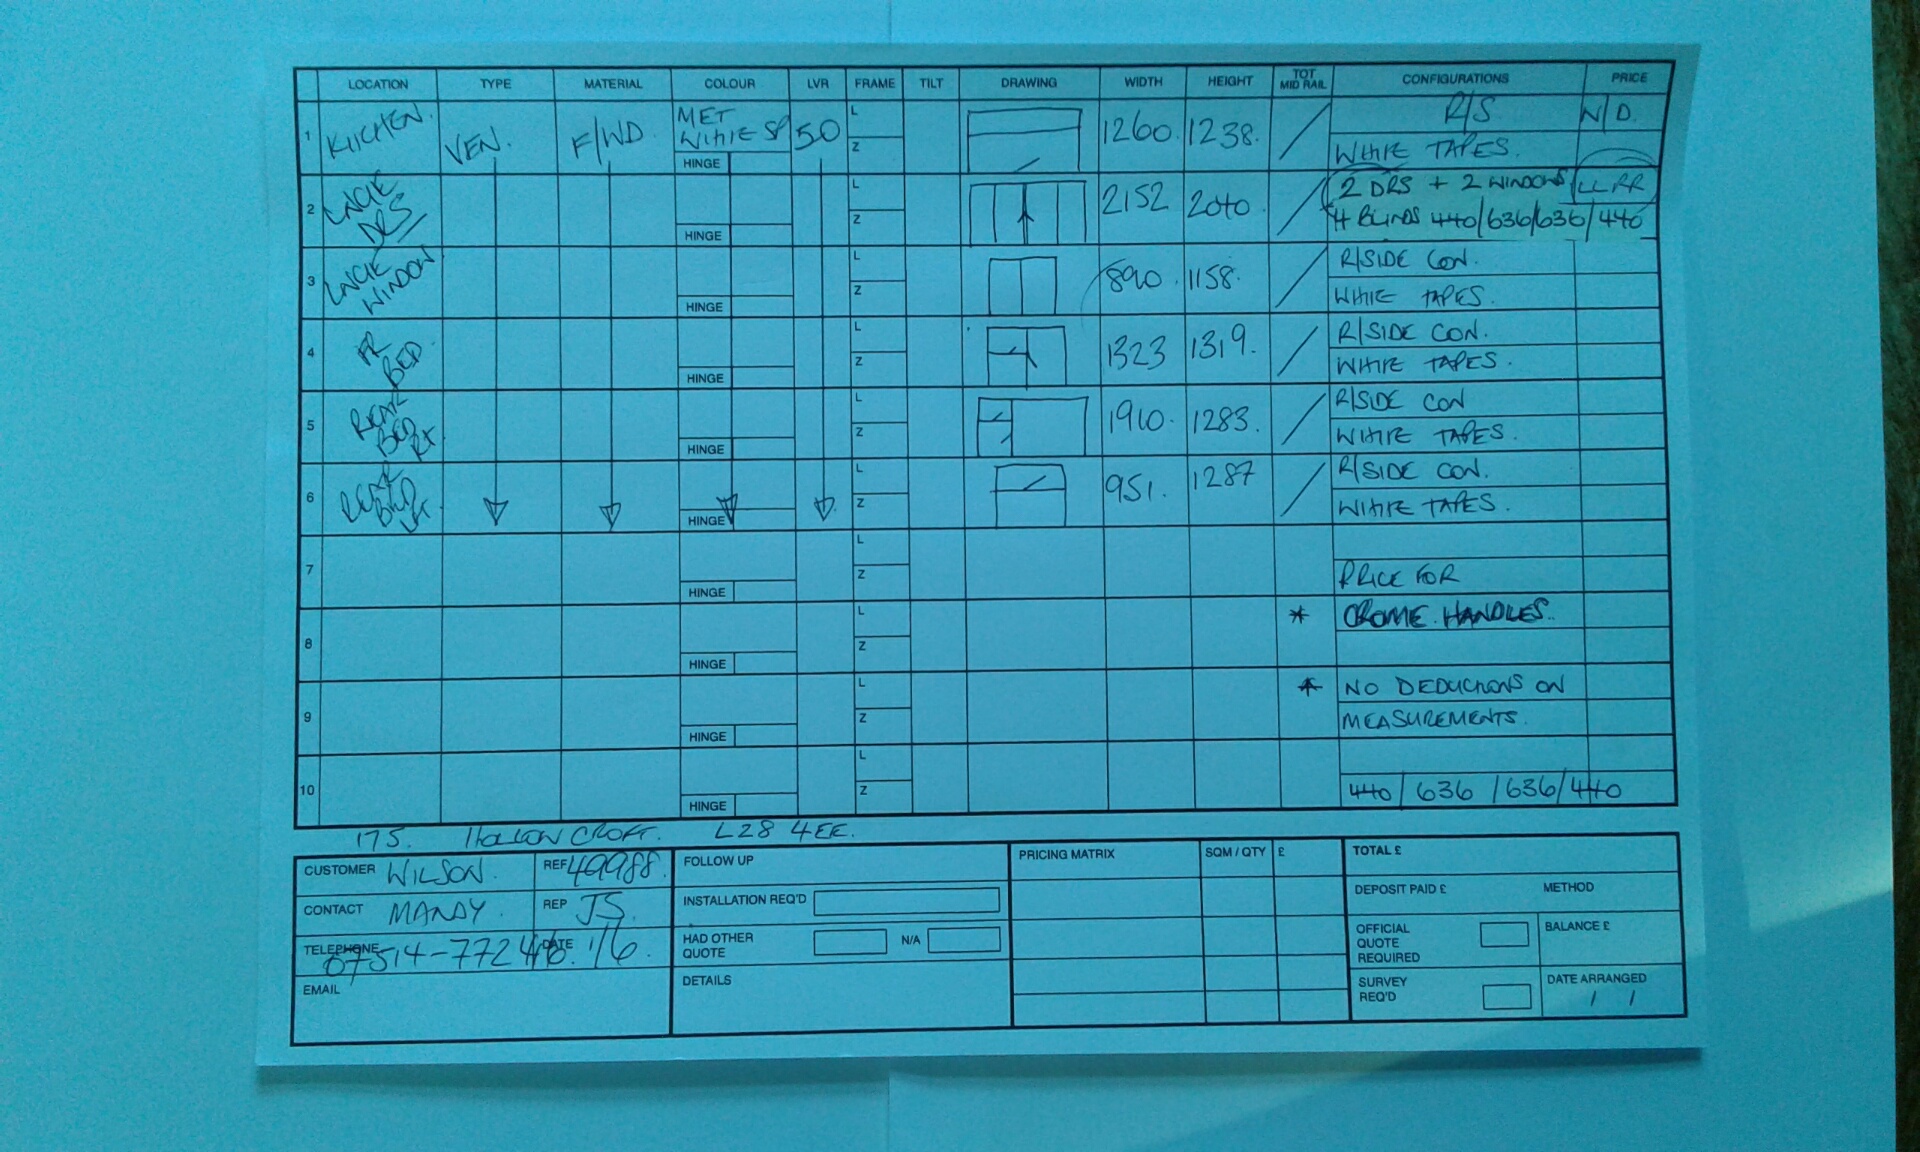 LOCATION TYPE MATERIAL COLOUR LVR FRAME TILT DRAWING WIDTH HEIGHT TOT MID RAIL CONFIGURATIONS PRICE
1 KITCHEN. VEN. F/WD. MET WHITE SP 50 L Z 1260. 1238. R/S N/D.
HINGE WHITE TAPES.
2 DRS L Z 2152 2040. 2 DRS + 2 WINDOWS LLRR
HINGE 4 BLINDS 440/636/636/440
3 WINDOW L Z 890. 1158. R/SIDE CON.
HINGE WHITE TAPES.
4 FR BED. L Z 1323 1319. R/SIDE CON.
HINGE WHITE TAPES.
5 REAR BED RT L Z 1910. 1283. R/SIDE CON
HINGE WHITE TAPES.
6 REAR BED L Z 951. 1287 R/SIDE CON.
HINGE WHITE TAPES.
7 L Z
HINGE PRICE FOR
8 L Z * CROME. HANDLES.
HINGE
9 L Z * NO DEDUCTIONS ON
HINGE MEASUREMENTS.
10 L Z
HINGE 440 / 636 / 636 / 440
175. HOLLOW CROFT. L28 4EE.
CUSTOMER WILSON. REF 49988.
CONTACT MANDY. REP JS.
TELEPHONE DATE 1/6.
EMAIL
FOLLOW UP
INSTALLATION REQ'D
HAD OTHER QUOTE N/A
DETAILS
PRICING MATRIX SQM / QTY £
TOTAL £
DEPOSIT PAID £ METHOD
OFFICIAL QUOTE REQUIRED BALANCE £
SURVEY REQ'D DATE ARRANGED
/ /